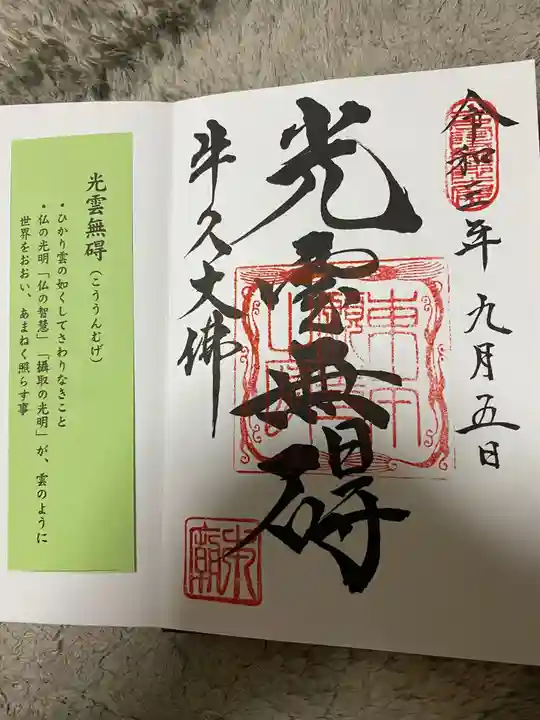 令和三年九月五日
光雲無碍
牛久大佛
光雲無碍（こううんむげ）
・ひかり雲の如くしてさわりなきこと
・仏の光明「仏の智慧」「摂取の光明」が、雲のように
世界をおおい、あまねく照らす事